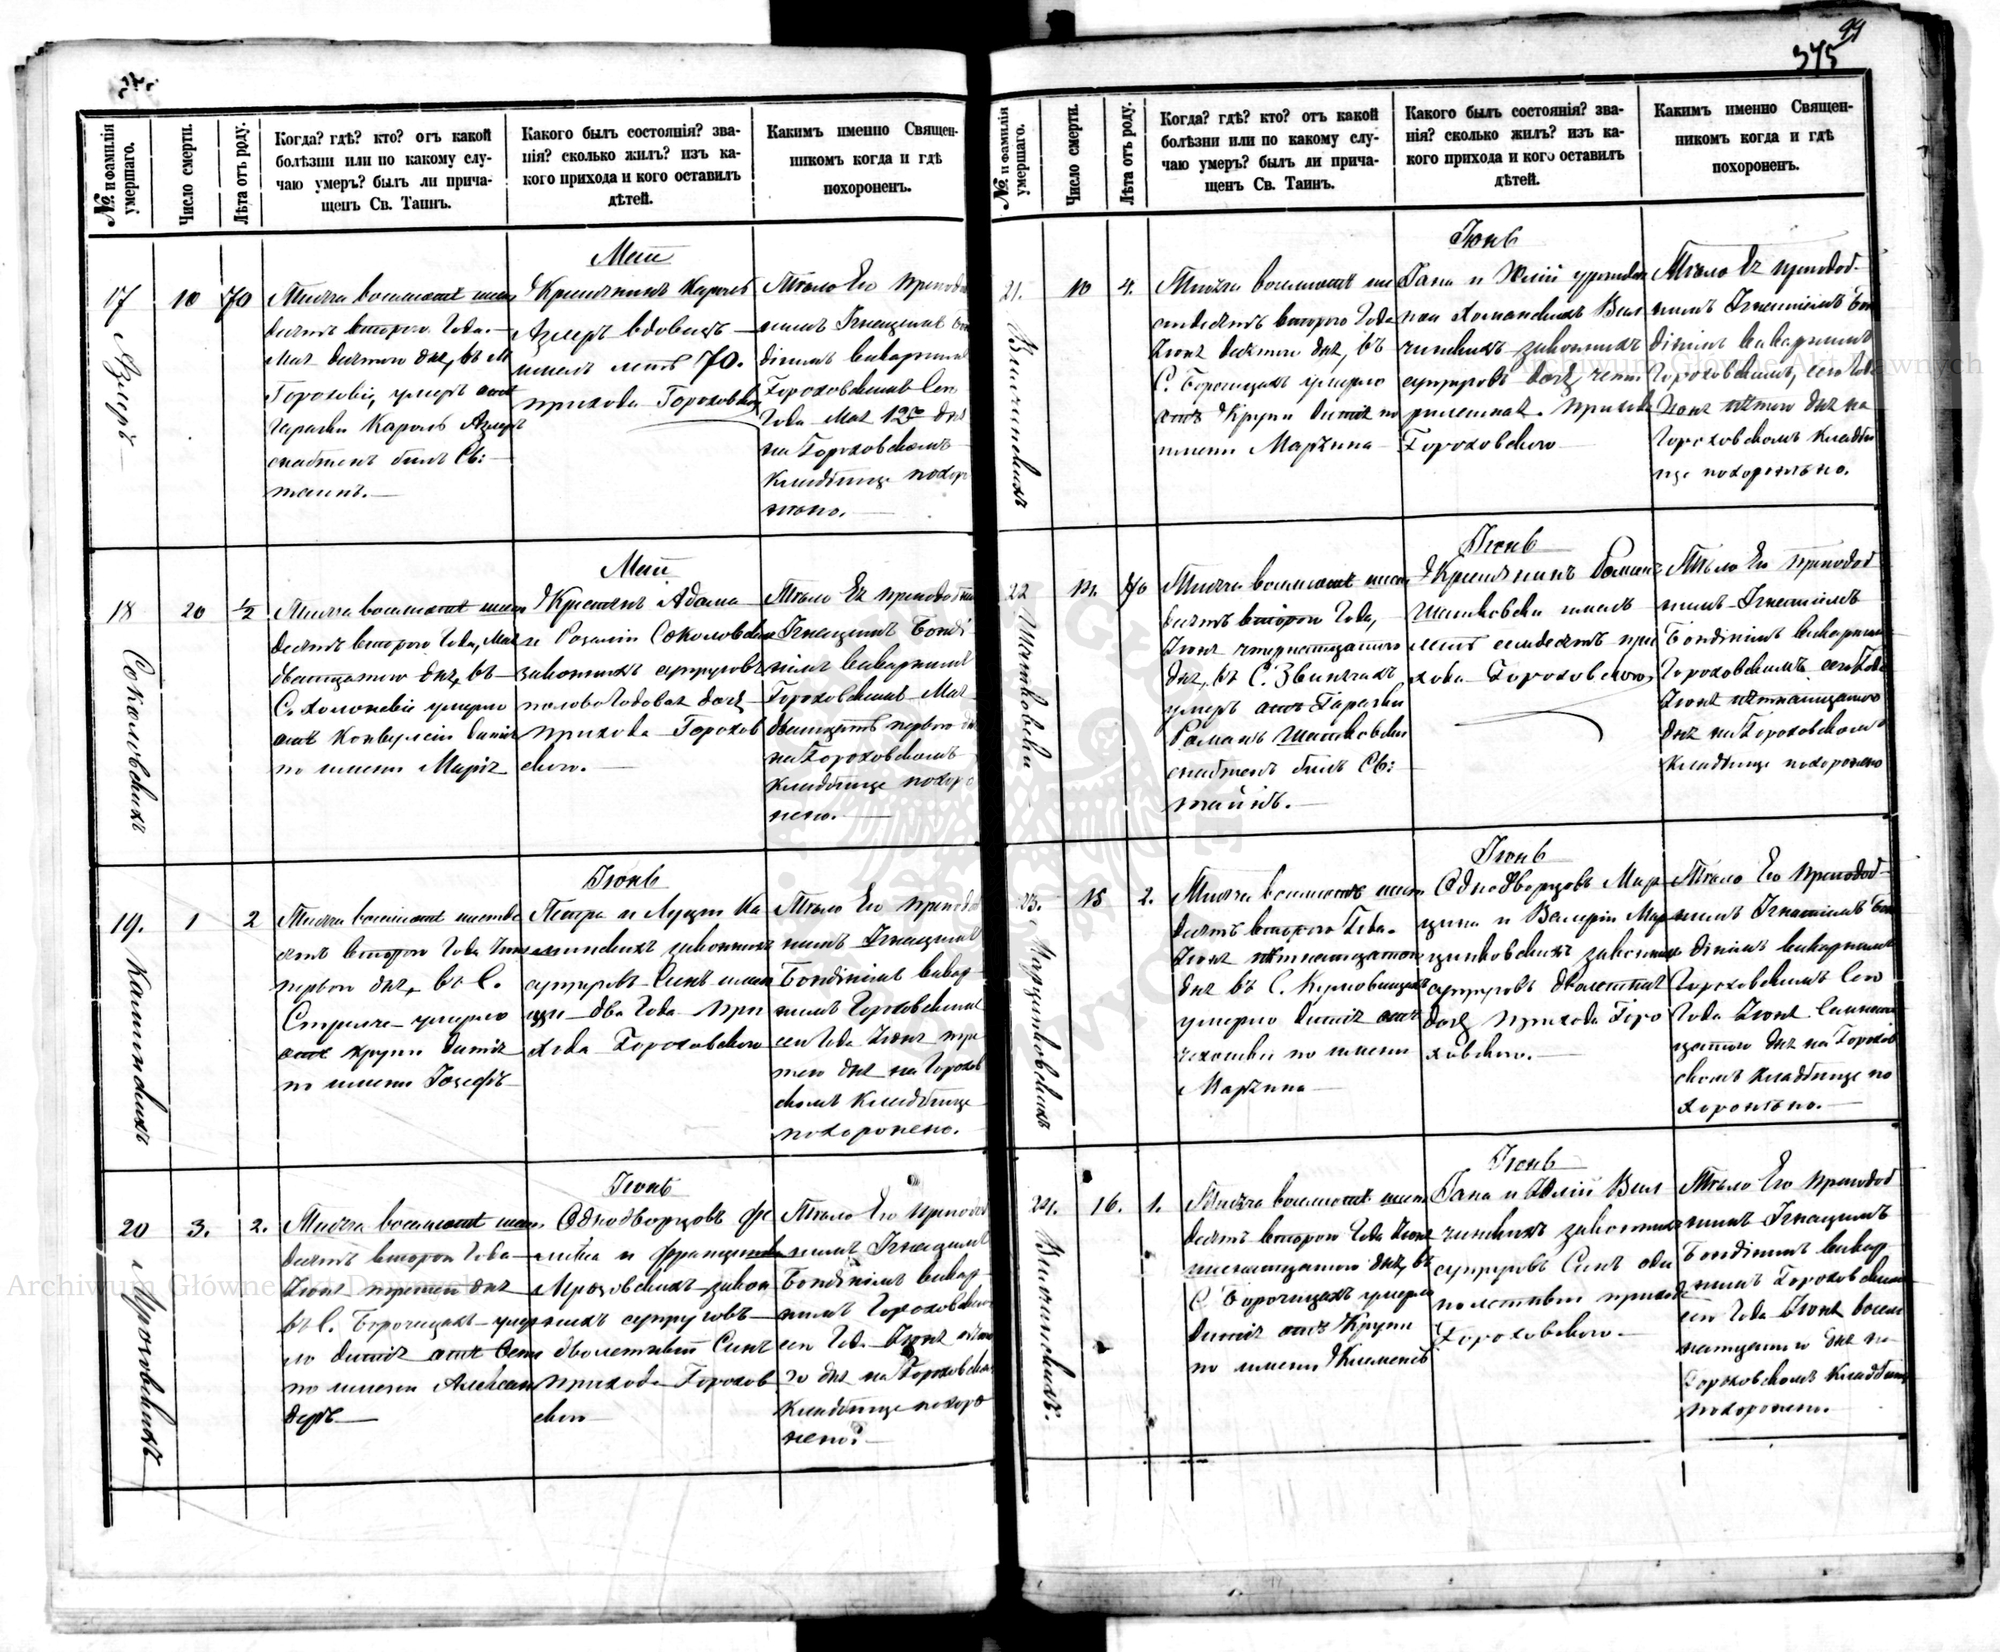 99
375
№ и фамилія умершаго.
Число смерти.
Лѣта отъ роду.
Когда? гдѣ? кто? отъ какой
болѣзни или по какому слу-
чаю умеръ? былъ ли прича-
щенъ Св. Таинъ.
Какого былъ состоянія? зва-
нія? сколько жилъ? изъ ка-
кого прихода и кого оставилъ
дѣтей.
Каким именно Священ-
никомъ когда и гдѣ
похороненъ.
Май
17
Азмеръ
10
70
Тысяча восемсотъ шест
десятъ второго Года
Мая десятого дня, въ М
Гороховѣ, умеръ отъ
Горячки Кароль Азмеръ
снабженъ былъ Св:
таинъ.
Крестянинъ Кароль
Азмеръ вдовецъ
имелъ летъ 70.
прихода Гороховск
Тѣло Его преподоб
нымъ Игнацiемъ Бон
дінимъ викарнымъ
Гороховскимъ Сего
Года Мая 12го дня
на Гороховскомъ
Кладбище похоро
нено.
Май
18
Соколовскихъ
20
1/2
Тысяча восемсотъ шест
десятъ второго Года, Мая
двадцатого дня, въ
С. Холоневѣ умерло
отъ Конвулсіи дитя
по имени Марія
Крестянъ Адама
и Розаліи Соколовских
законныхъ супруговъ
половогодовая дочь
прихода Горохов
ского.
Тѣло Ея преподобным
Игнацiемъ Бонді
нимъ викарнымъ
Гороховскимъ Мая
двадцать первого дня
на Гороховскомъ
Кладбище похоро
нено.
Іюнь
19.
Каминскихъ
1
2
Тысяча восемсотъ шестде
сятъ второго Года Іюня
первого дня, въ С.
Стрилче умерло
отъ крупи дитя
по имени Іозефъ
Петра и Луции Ка
минскихъ законныхъ
супруговъ Сынъ имею
щи два Года при
хода Гороховского
Тѣло Его преподоб
нымъ Игнацiемъ
Бондінимъ викар
нымъ Гороховскимъ
сего Года Іюня тре
того дня на Горохов
скомъ Кладбище
похоронено.
Іюнь
20
Мрозовскихъ
3.
2.
Тысяча восемсотъ шест
десятъ второго Года
Іюня третого дня
въ С. Борочицахъ умер
ло дитя отъ Оспи
по имени Алексан
деръ
Однодворцовъ Фе
ликса и Францишки
Мрозовскихъ закон
ныхъ супруговъ
дволетный Сынъ
прихода Горохов
ского
Тѣло Его преподоб
нымъ Игнацiемъ
Бондінимъ викар
нымъ Гороховским
сего Года Іюня
го дня на Гороховском
Кладбище похоро
нено.
№ и фамилія умершаго.
Число смерти.
Лѣта отъ роду.
Когда? гдѣ? кто? отъ какой
болѣзни или по какому слу-
чаю умеръ? былъ ли прича-
щенъ Св. Таинъ.
Какого былъ состоянія? зва-
нія? сколько жилъ? изъ ка-
кого прихода и кого оставилъ
дѣтей.
Каким именно Священ-
никомъ когда и гдѣ
похороненъ.
Іюнь
21.
10
4.
Тысяча восемсотъ ше
стдесятъ второго Года
Іюня десятого дня, въ
С. Борочицахъ умерло
отъ Крупи дитя по
имени Марѣина
Яна и Юлiи
законныхъ
супруговъ дочь
прихода
Гороховского
Тѣло Ея преподоб
нымъ Игнацiемъ Бон
дінимъ викарнымъ
Гороховскимъ, сего Года
Іюня дня на
Гороховскомъ Кладби
ще похоронено.
Іюнь
22
Шатковски
14.
70
Тысяча восемсотъ шест
десятъ второго Года,
Іюня четирнадцатого
дня, въ С. Звиначахъ
умеръ отъ Горячки
Романъ Шатковски
снабженъ былъ Св:
тайнъ.
Крестянинъ Романъ
Шатковски имелъ
летъ семдесятъ при
хода Гороховского
Тѣло Его преподоб
нымъ Игнацiемъ
Бондінимъ викарным
Гороховскимъ сего Года
Іюня пятнадцатого
дня на Гороховскомъ
Кладбище похоронено
Іюнь
23.
Марцинковскихъ
15
2.
Тысяча восемсотъ шест
десятъ второго Года
Іюня пятнадцатого
дня въ С.
умерло дитя отъ
по имени
Марѣина
Однодворцовъ Мар
цина и Валеріи Мар
цинковскихъ законных
супруговъ дволетняя
дочь прихода Горо
ховского.
Тѣло Его преподоб
нымъ Игнацiемъ Бон
дінимъ викарнымъ
Гороховскимъ Сего
Года Іюня Семнад
цатого дня на Горохов
скомъ кладбище по
хоронено.
Іюнь
24.
16.
1.
Тысяча восемсотъ шест
десятъ второго Года Іюня
шеснадцатого дня, въ
С. Борочицахъ умерло
дитя отъ Крупи
по имени Клеменсъ
Яна и Юлiи
законных
супруговъ Сынъ одно
нолетный прихода
Гороховского
Тѣло Его преподоб
нымъ Игнацiемъ
Бондінимъ викар
нымъ Гороховским
сего Года Іюня восем
надцатого дня на
Гороховскомъ Кладбище
похоронено.
Archiwum Główne Akt Dawnych
Archiwum Główne Akt Dawnych